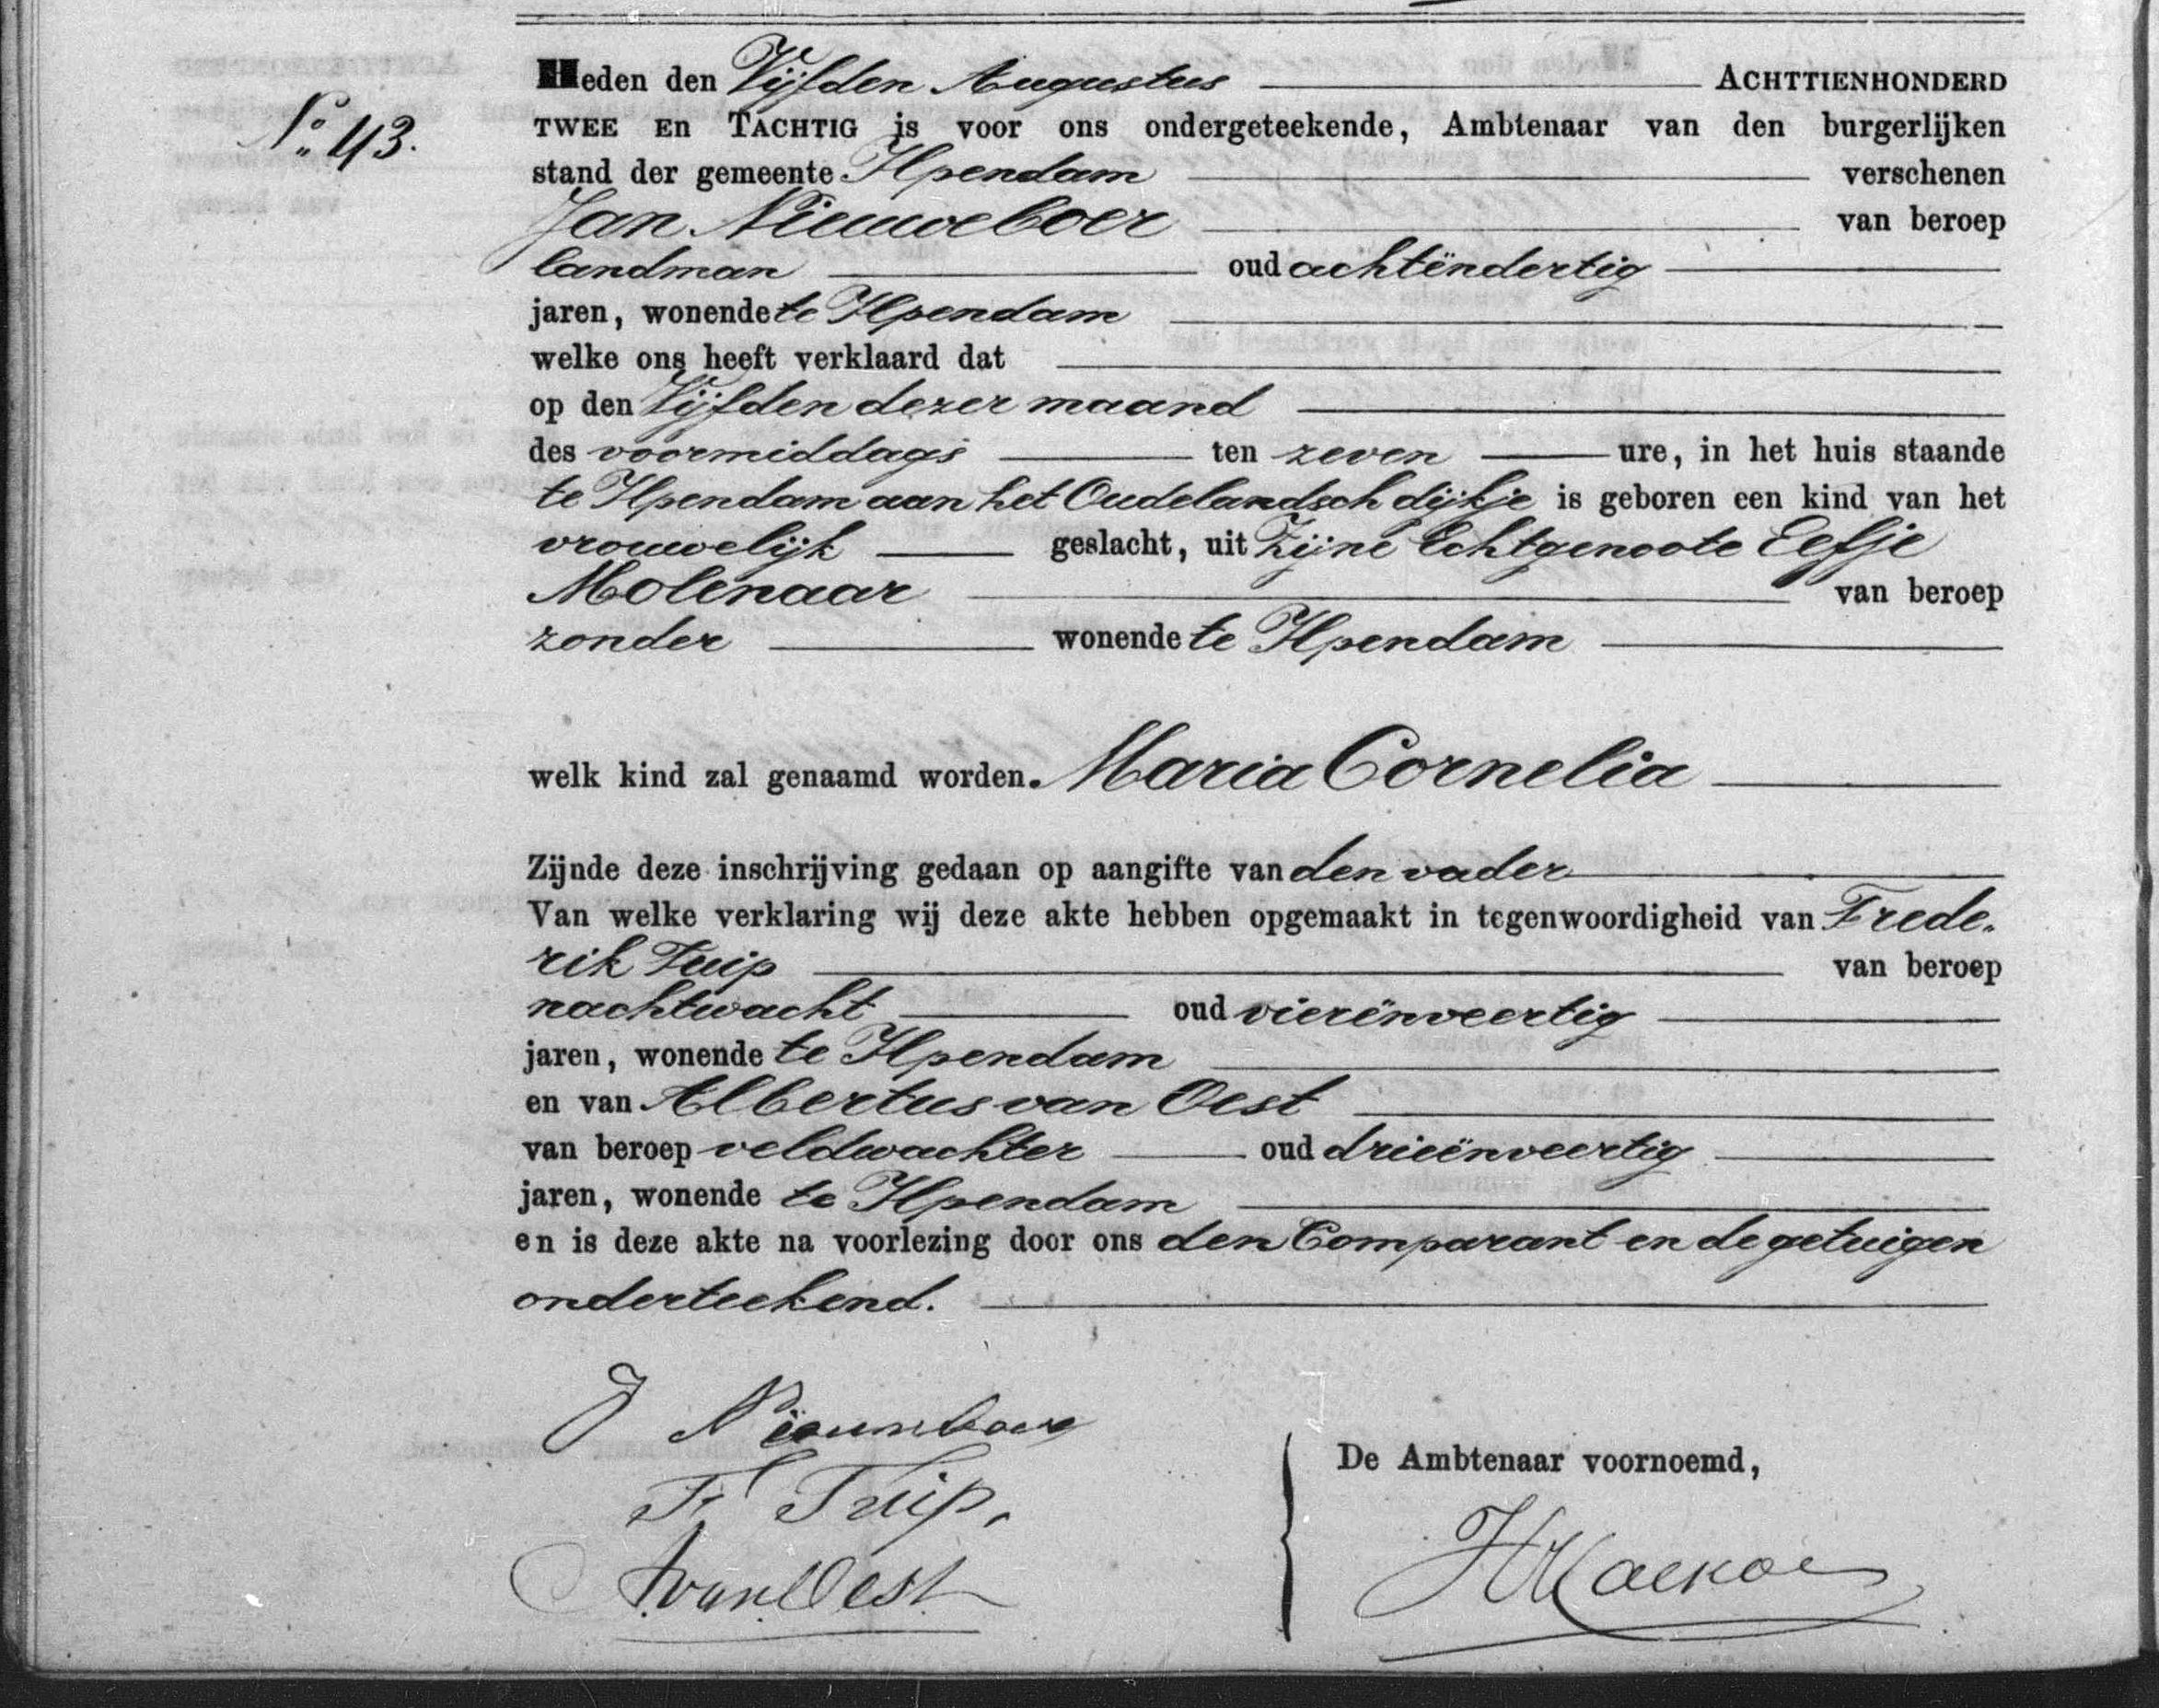 Heden den Vijfden Augustus ACHTTIENHONDERD
No. 43.
TWEE EN TACHTIG is voor ons ondergeteekende, Ambtenaar van den burgerlijken
stand der gemeente Ilpendam verschenen
Jan Nieuweboer van beroep
landman oud achtëndertig
jaren, wonende te Ilpendam
welke ons heeft verklaard dat
op den Vijfden dezer maand
des voormiddags ten zeven ure, in het huis staande
te Ilpendam aan het Oudelandsch dijkje is geboren een kind van het
vrouwelijk geslacht, uit Zijne Echtgenoote Eefje
Molenaar van beroep
zonder wonende te Ilpendam
welk kind zal genaamd worden. Maria Cornelia
Zijnde deze inschrijving gedaan op aangifte van den vader
Van welke verklaring wij deze akte hebben opgemaakt in tegenwoordigheid van Frede-
rik Tuip van beroep
nachtwacht oud vierënveertig
jaren, wonende te Ilpendam
en van Albertus van Oest
van beroep veldwachter oud drieënveertig
jaren, wonende te Ilpendam
en is deze akte na voorlezing door ons den Comparant en de getuigen
onderteekend.
J Nieuwboer
F Tuip.
A van Oest
De Ambtenaar voornoemd,